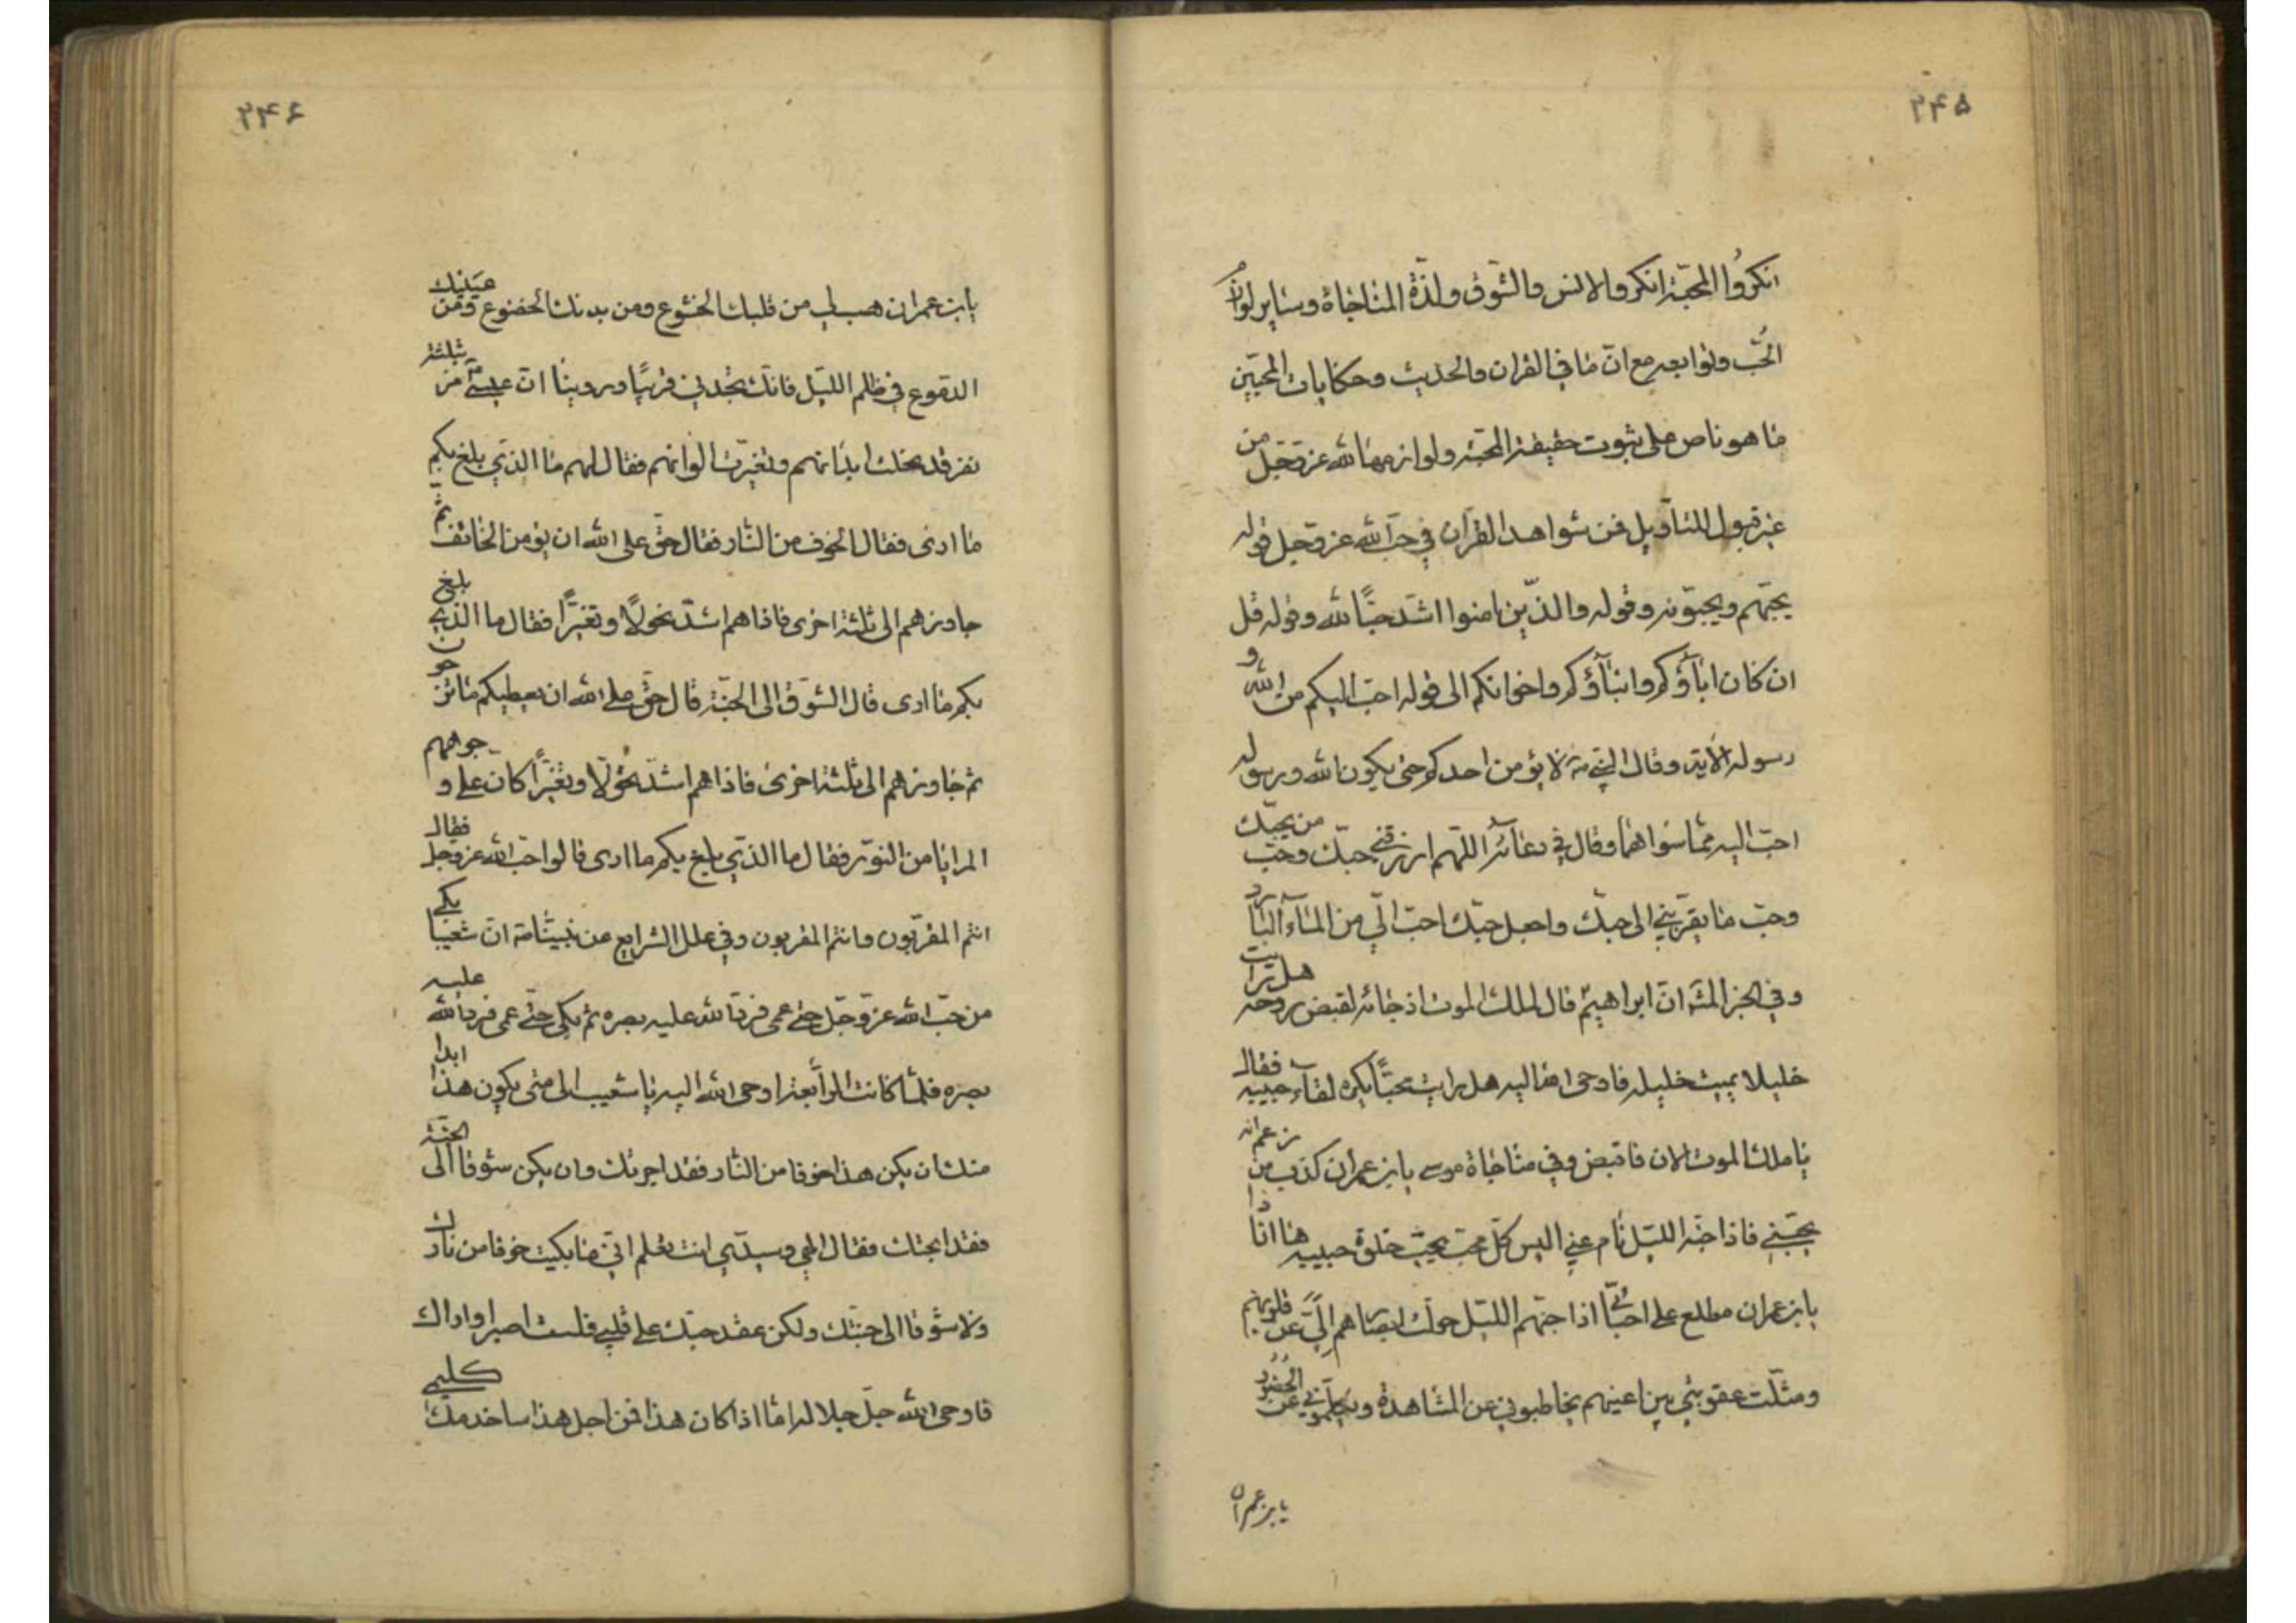 ۲۴۵
انكروا المحبّة انكروا الانس والشّوق ولذّة المناجاة وساير لوازم
الحُبّ وتوابعه مع انّ ما في القران والحديث وحكايات المحبّين
ما هو ناص على ثبوت حقيقة المحبّة ولوازمها لله عز وجل من
غير قبول للتاويل فمن شواهد القرآن في حبّ الله عز وجل قوله
يحبّهم ويحبّونه وقوله والذّين امنوا اشدّ حبًّا لله وقوله قل
ان كان اباؤكم وابناؤكم واخوانكم الى قوله احبّ اليكم من الله و
رسوله الاية وقال النبي ص لا يؤمن احدكم حتى يكون الله ورسوله
احبّ اليه ممّا سواهما وقال في دعائه اللّهم ارزقني حبّك وحبّ من يحبّك
وحبّ ما يقرّبني الى حبّك واجعل حبّك احبّ الّي من الماء البارد
وفي الخبر المشهور انّ ابراهيم قال لملك الموت اذ جائه لقبض روحه هل رايت
خليلا يميت خليله فاوحى الله اليه هل رايت محبًّا يكره لقاء حبيبه فقال
يا ملك الموت الان فاقبض وفي مناجاة موسى يابن عمران كذب من زعم انه
يحبّني فاذا جنّه الليّل نام عنّي اليس كلّ محبّ يحبّ خلوة حبيبه ها انا ذا
يابن عمران مطلع على احبّائي اذا جنّهم الليّل حولت ابصارهم اليّ عن قلوبهم
ومثلّت عقوبتي بين اعينهم يخاطبوني عن المشاهدة ويكلّموني عن الحضور
يابن عمران
۲۴۶
يابن عمران هب لي من قلبك الخشوع ومن بدنك الخضوع ومن عينيك
الدّموع في ظلم الليّل فانّك تجدني قريبًا وروينا انّ عيسى مرّ بثلثة
نفر قد نحلت ابدانهم وتغيّرت الوانهم فقال لهم ما الذي بلغ بكم
ما ارى فقال الخوف من النّار فقال حقّ على الله ان يؤمن الخائف ثمّ
جاوزهم الى ثلثة اخرى فاذا هم اشدّ نحولًا وتغيّرًا فقال ما الذي بلغ
بكم ما ارى قال الشّوق الى الجنّة قال حقّ على الله ان يعطيكم ما ترجون
ثم جاوزهم الى ثلثة اخرى فاذا هم اشدّ نحولًا وتغيّرًا كان على وجوههم
المرايا من النّور فقال ما الذي بلغ بكم ما ارى قالوا حبّ الله عز وجل فقال
انتم المقرّبون وانتم المقربون وفي علل الشرايع عن نبيّنا ص انّ شعيبا بكى
من حبّ الله عزّ وجلّ حتّى عمى فردّ الله عليه بصره ثم بكى حتّى عمى فردّ الله عليه
بصره فلمّا كانت الرابعة اوحى الله اليه يا شعيب الى متى يكون هذا ابدا
منك ان يكن هذا خوفا من النّار فقد اجرتك وان يكن شوقا الى الجنّة
فقد ابحتك فقال الهي وسيدّي انت تعلم انّي ما بكيت خوفا من نارك
ولا شوقا الى جنّتك ولكن عقد حبّك على قلبي فلست اصبر او اراك
فاوحى الله جلّ جلاله امّا اذا كان هذا فمن اجل هذا ساخدمك كليمي